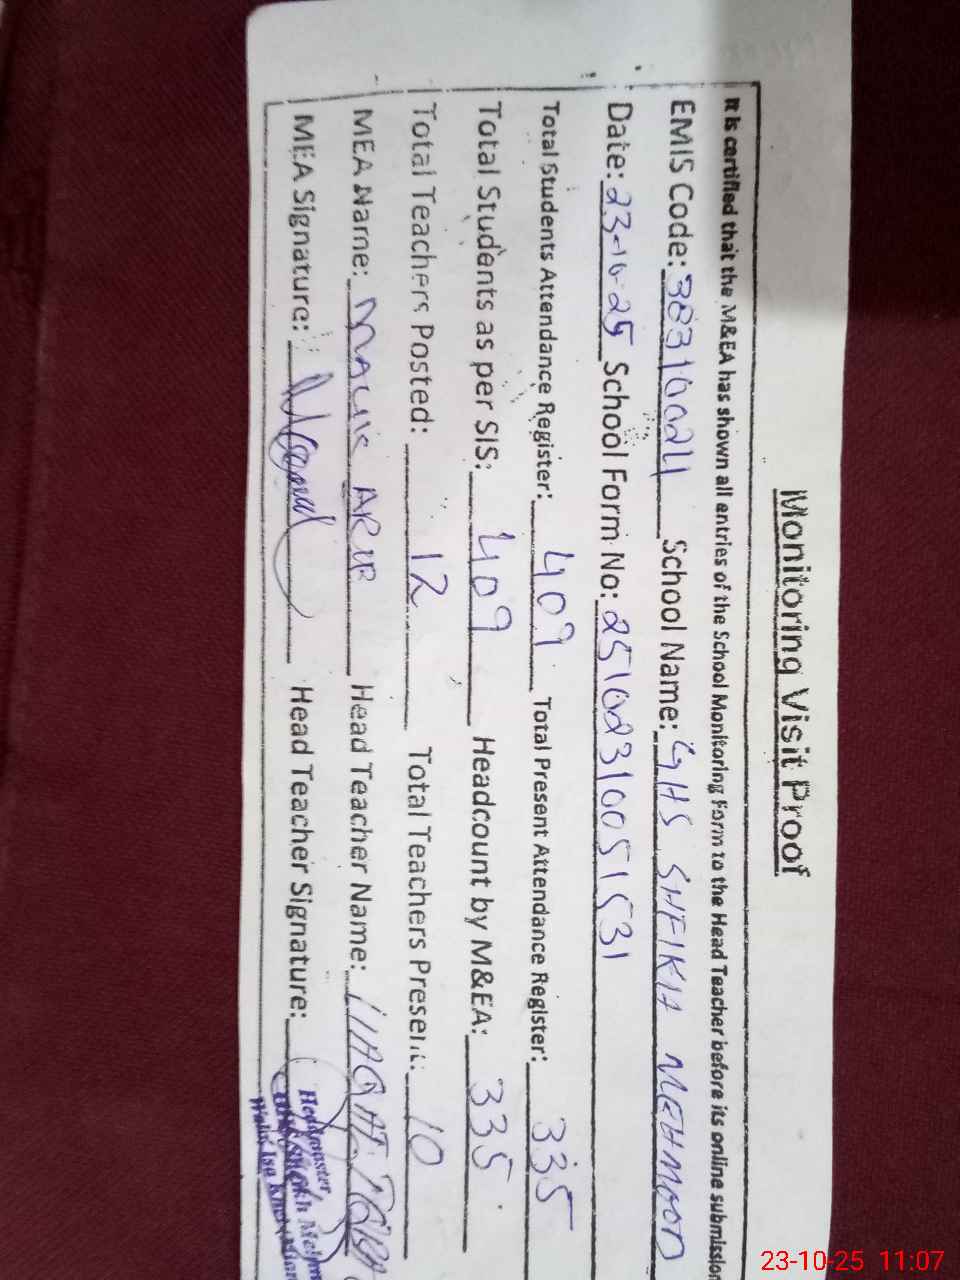 Monitoring Visit Proof
It is certified that the M&EA has shown all entries of the School Monitoring Form to the Head Teacher before its online submission
EMIS Code: 38310024 School Name: GHS SHEIKH MEHMOOD
Date: 23-10-25 School Form No: 25102310051531
Total Students Attendance Register: 409 Total Present Attendance Register: 335
Total Students as per SIS: 409 Headcount by M&EA: 335
Total Teachers Posted: 12 Total Teachers Present: 10
MEA Name: MALIK ARIF Head Teacher Name:
MEA Signature: Head Teacher Signature:
Headmaster
Sheikh
23-10-25 11:07